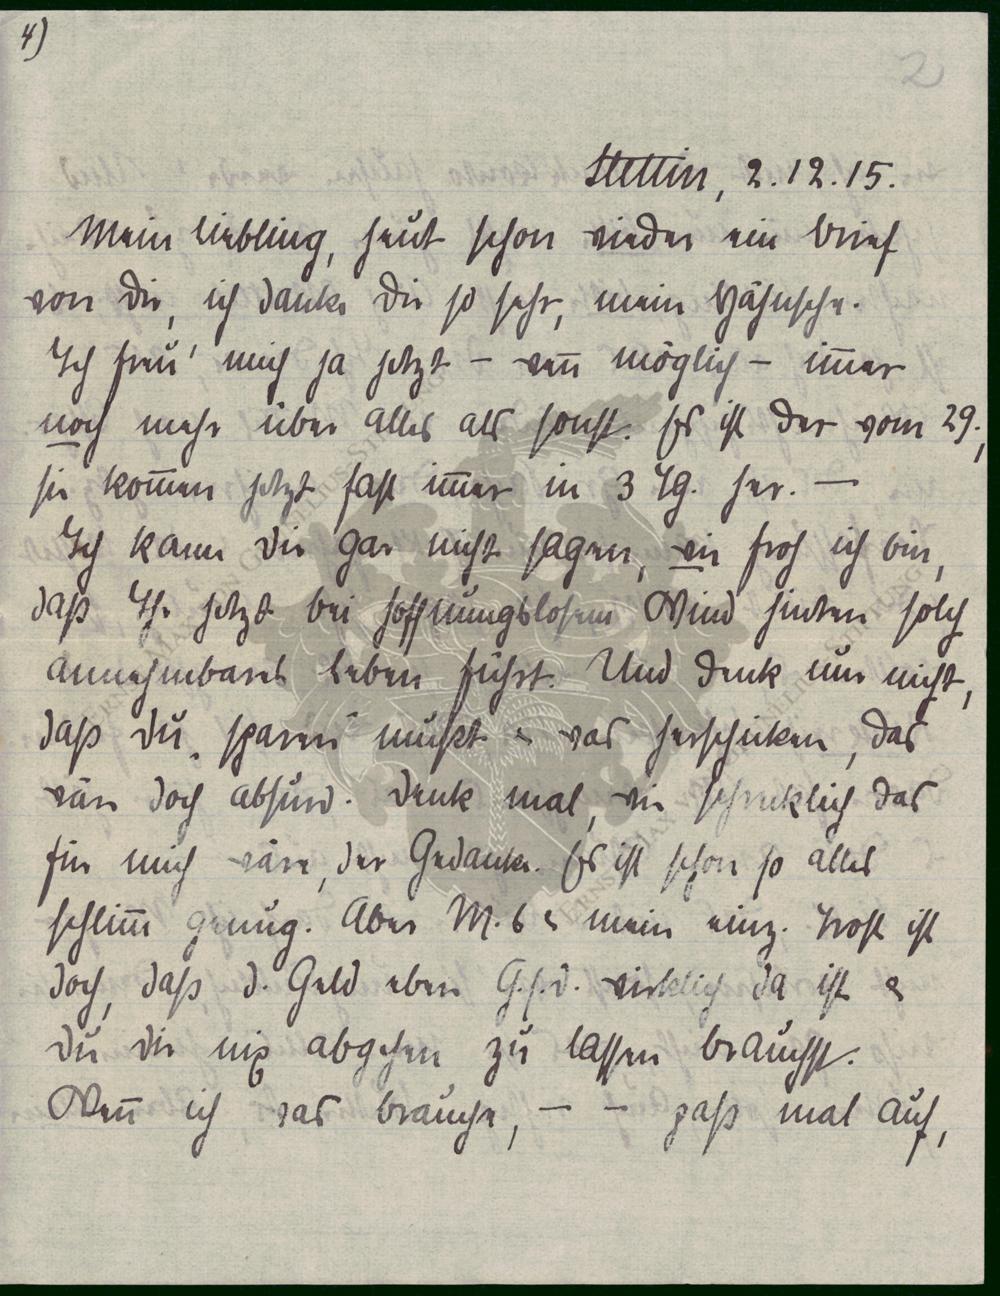 4)
2
Stettin, 2.12.15.
Mein Liebling, heut schon wieder ein Brief
von Dir, ich danke Dir so sehr, mein Hähnsche.
Ich freu' mich ja jetzt – wen̄ möglich – im̄er
noch mehr über alles als sonst. Es ist der vom 29.,
sie kom̄en jetzt fast im̄er in 3 Tg. her. —
Ich kann Dir gar nicht sagen, wie froh ich bin,
daß Ihr jetzt bei hoffnungslosem Wind hinten solch
annehmbares Leben führt. Und denk nur nicht,
daß Du sparen mußt & was herschicken, das
wär doch absurd. Denk mal, wie schrecklich das
für mich wäre, der Gedanke. Es ist schon so alles
schlim̄ genug. Aber M. b & mein einz. Trost ist
doch, daß d. Geld eben G.s.d. wirklich da ist &
Du Dir nix abgehen zu lassen brauchst.
Wen̄ ich was brauche, – – paß mal auf,